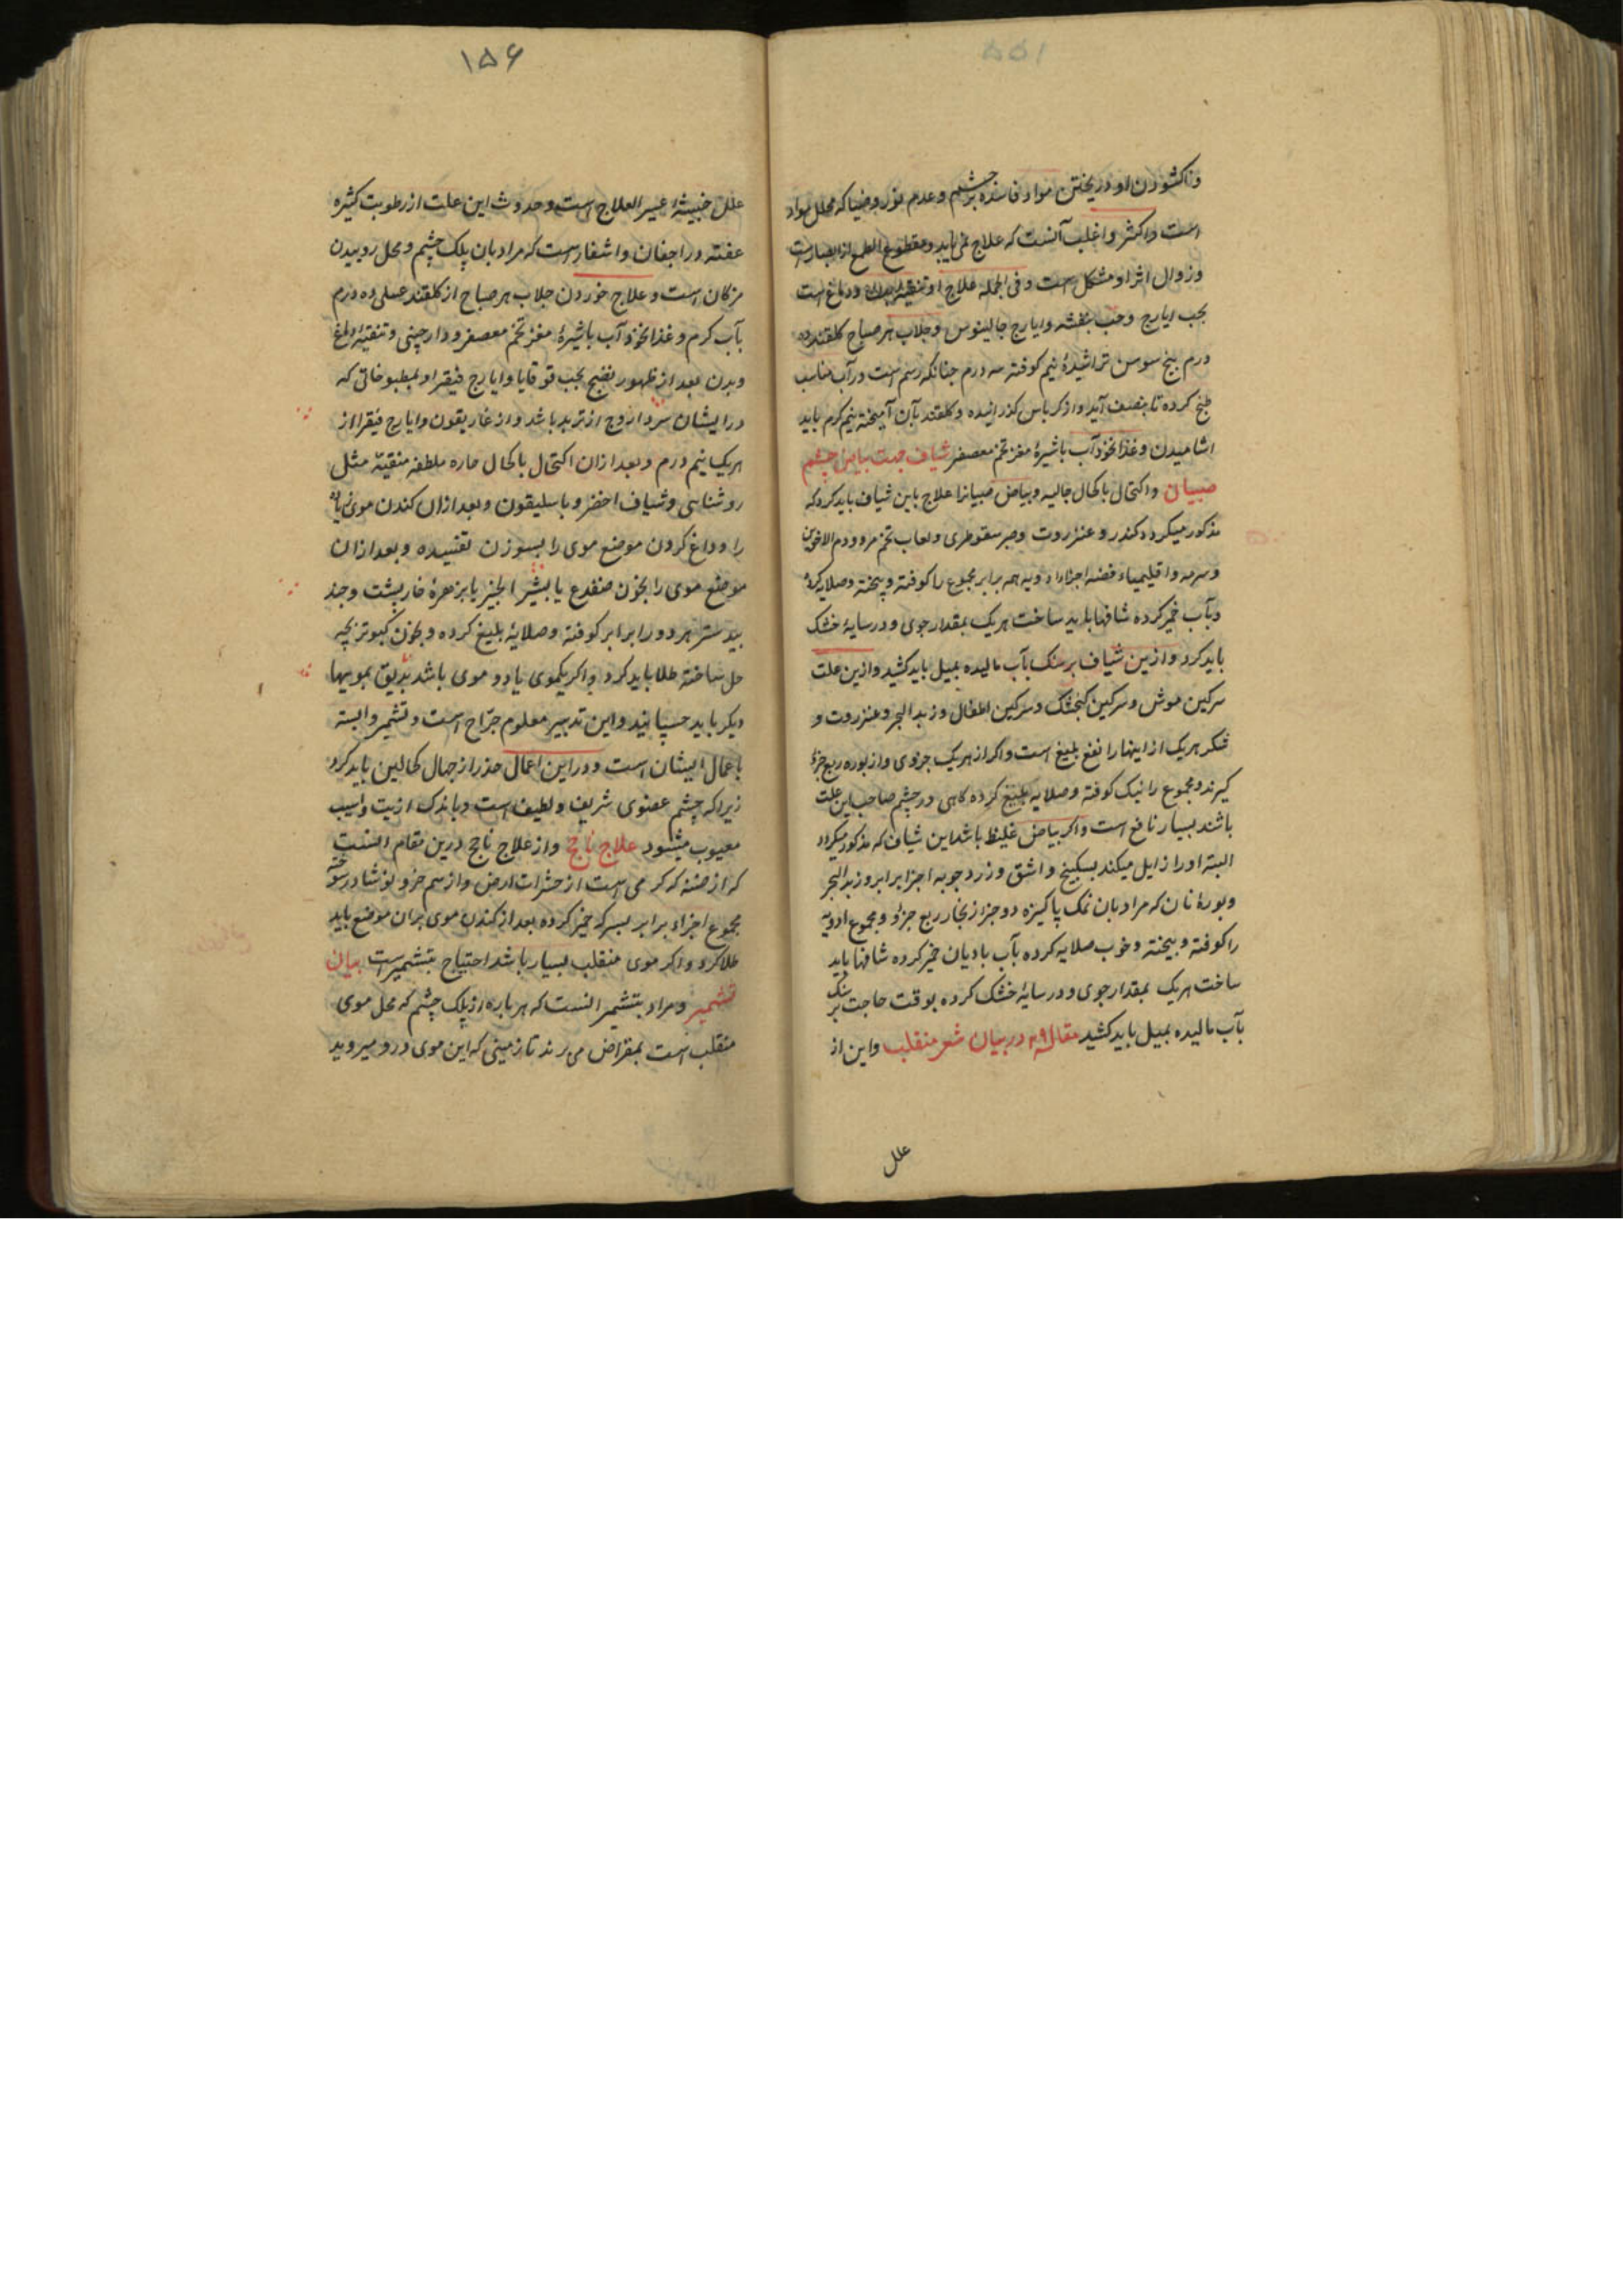 وناکشودن او در ریختن مواد فاسده بر چشم و عدم نور و ضیا که محلل مواد
است و اکثر و اغلب آنست که علاج نمی یابد و مقطوع الطمع از ابصار است
و زوال اثر او مشکل است و فی الجمله علاج او تنقیه بدن و دماغ است
بحب ایارج و حب بنفشه و ایارج جالینوس و جلاب هر صباح کلقند ده
درم بیخ سوس تراشیدهٔ نیم کوفته سه درم چنانکه رسم است در آب مناسب
طبخ کرده تا بنصف آید و از کرباس کذرانیده و کلقند بآن آمیخته نیم کرم باید
اشامیدن و غذا نخود آب باشیرهٔ مغز تخم معصفر شیاف جهت بیاض چشم
صبیان و اکتحال باکحال جالیه و بیاض صبیانرا علاج باین شیاف باید کرد که
مذکور میکردد کندر و عنزروت و صبر سقوطری و لعاب تخم مرو و دم الاخوین
و سرمه و اقلیمیاء فضه اجزاء ادویه همه برابر مجموع را کوفته و بیخته و صلایه کرده
و بآب خمیر کرده شافها باید ساخت هریک بمقدار جوی و در سایهٔ خشک
باید کرد و ازین شیاف بر سنک بآب مالیده بمیل باید کشید و ازین علت
سرکین موش و سرکین کنجشک و سرکین اطفال و زبد البحر و عنزروت و
شکر هریک از اینها را نفع بلیغ است و اکر از هریک جزوی و از بوره ربع جزؤ
کیرند و مجموع را نیک کوفته و صلایه بلیغ کرده کاهی در چشم صاحب این علت
باشند بسیار نافع است و اکر بیاض غلیظ باشد این شیاف که مذکور میکردد
البته او را زایل میکند بسکبینج و اشق و زرد چوبه اجزا برابر و زبد البحر
و بورهٔ نان که مراد بان نمک پاکیزه دو جز از بخار ربع جزؤ و مجموع ادویه
را کوفته و بیخته و خوب صلایه کرده بآب بادیان خمیر کرده شافها باید
ساخت هریک بمقدار جوی و در سایهٔ خشک کرده بوقت حاجت بر سنک
بآب مالیده بمیل باید کشید مقاله ۲۹ در بیان شعر منقلب و این از
علل
۱۵۶
علل خبیثهٔ عسیر العلاج است و حدوث این علت از رطوبت کثیره
عفنه در اجفان و اشفار است که مراد بان پلک چشم و محل روییدن
مژکان است و علاج خوردن جلاب هر صباح از کلقند عسلی ده درم
بآب کرم و غذا نخود آب باشیرهٔ مغز تخم معصفر و دارچینی و تنقیهٔ دماغ
و بدن بعد از ظهور نضج بحب قوقایا و ایارج فیقرا و بمطبوخاتی که
در ایشان سرداروج از تربد باشد و از غاریقون و ایارج فیقرا از
هریک نیم درم و بعد از ان اکتحال باکحال حاره ملطفه منقیّه مثل
روشنایی و شیاف اخضر و باسلیقون و بعد از ان کندن موی زیاده
را و داغ کردن موضع موی را بسوزن تفسیده و بعد از ان
موضع موی را بخون ضفدع یا بشیر انجیر یا بزهرهٔ خارپشت و جند
بیدستر هر دو را برابر کوفته و صلایهٔ بلیغ کرده و بخون کبوتر بچه
حل ساخته طلا باید کرد و اکر یکموی یا دو موی باشد بدبق بمویها
دیکر باید چسپانید و این تدبیر معلوم جرّاح است و تشمیر وابسته
باعمال ایشان است و در این اعمال حذر از جهال کحالین باید کرد
زیرا که چشم عضوی شریف و لطیف است و باندک اذیت و اسیب
معیوب میشود علاج ناجح و از علاج ناجح درین مقام آنست
که ارضه که کرمی است از حشرات ارض و از سم خر و نوشادر سوخته
مجموع اجزاء برابر بسرکه خمیر کرده بعد از کندن موی بران موضع باید
طلا کرد و اکر موی منقلب بسیار باشد احتیاج بتشمیر است بیان
تشمیر و مراد بتشمیر انست که هر باره از پلک چشم که محل موی
منقلب است بمقراض می برند تا زمینی که این موی درو میروید